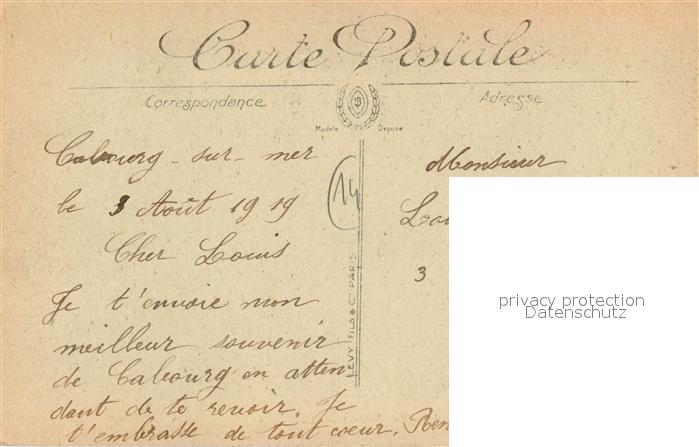 Carte Postale
Correspondance
Adresse
Modèle Déposé
Cabourg - sur - mer
le 3 Août 1919
Cher Louis
Je t'envoie mon
meilleur souvenir
de Cabourg en atten
dant de te revoir. Je
t'embrasse de tout coeur.
14
LEVY FILS & Cie PARIS
Monsieur
3
privacy protection
Datenschutz